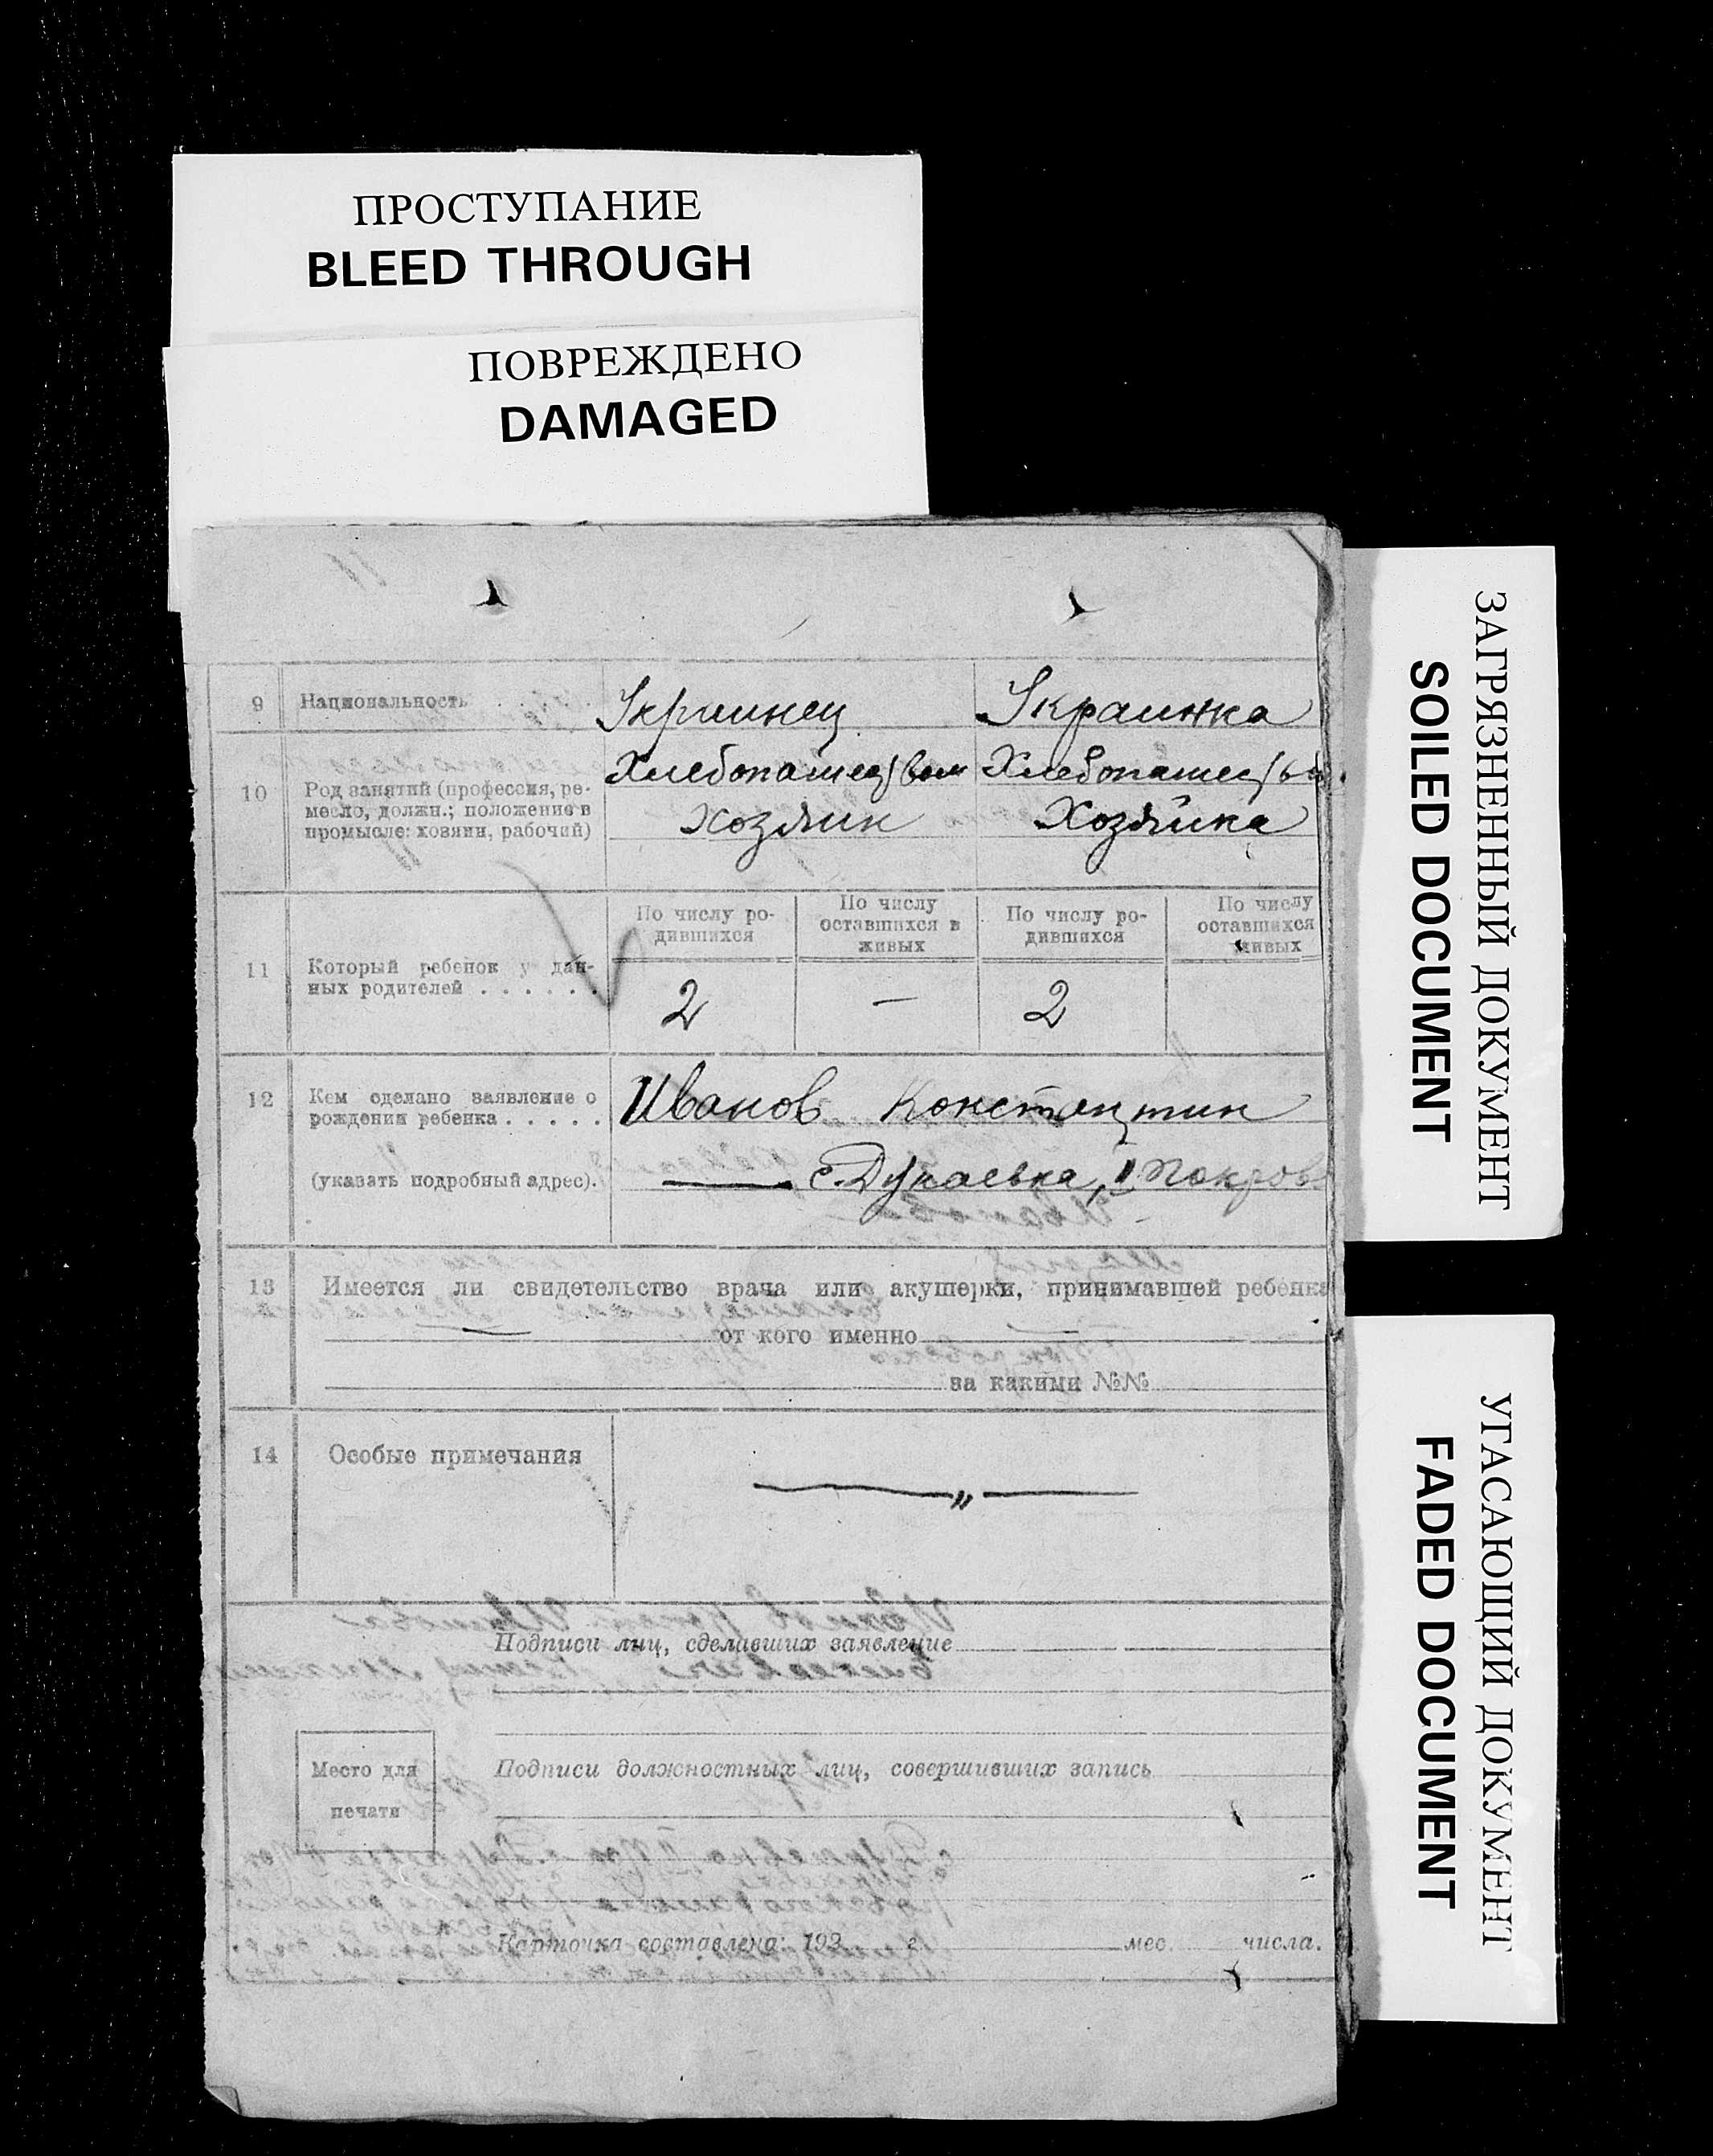 ПРОСТУПАНИЕ
BLEED THROUGH
ПОВРЕЖДЕНО
DAMAGED
ЗАГРЯЗНЕННЫЙ ДОКУМЕНТ
SOILED DOCUMENT
УГАСАЮЩИЙ ДОКУМЕНТ
FADED DOCUMENT
9 Национальность Украинец Украинка
Хлебопашеством Хлебопашеств.
10 Род занятий (профессия, ре-
месло, должн.; положение в
промысле: хозяин, рабочий) Хозяин Хозяйка
По числу ро- По числу По числу ро- По числу
дившихся оставшихся в дившихся оставшихся
живых живых
11 Который ребенок у дан-
ных родителей . . . . . . 2 — 2
12 Кем сделано заявление о
рождении ребенка . . . . . Иванов Константин
(указать подробный адрес). с. Дунаевка, II Покров
13 Имеется ли свидетельство врача или акушерки, принимавшей ребенка
— от кого именно —
за какими №№
14 Особые примечания — „ —
Подписи лиц, сделавших заявление
Место для
печати
Подписи должностных лиц, совершивших запись
Карточка составлена: 192 г. мес. числа.